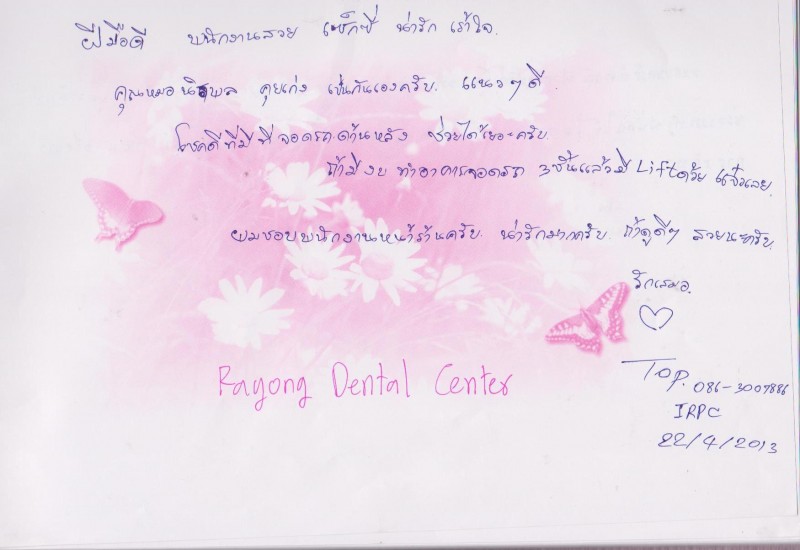 ฝีมือดี พนักงานสวย เซ็กซี่ น่ารัก เร้าใจ.
คุณหมอนิรพล คุยเก่ง เป็นกันเองครับ. แนวๆ ดี
โชคดีที่มีที่จอดรถด้านหลัง ช่วยได้เยอะครับ.
ถ้ามีงบ ทำอาคารจอดรถ 3 ชั้นแล้วมี Lift ด้วย แจ๋วเลย.
ผมชอบพนักงานหน้าร้านครับ. น่ารักมากครับ. ถ้าดูดีๆ สวยนะครับ.
รักเสมอ.
Rayong Dental Center
Top. 086-3007886
IRPC
22/4/2013